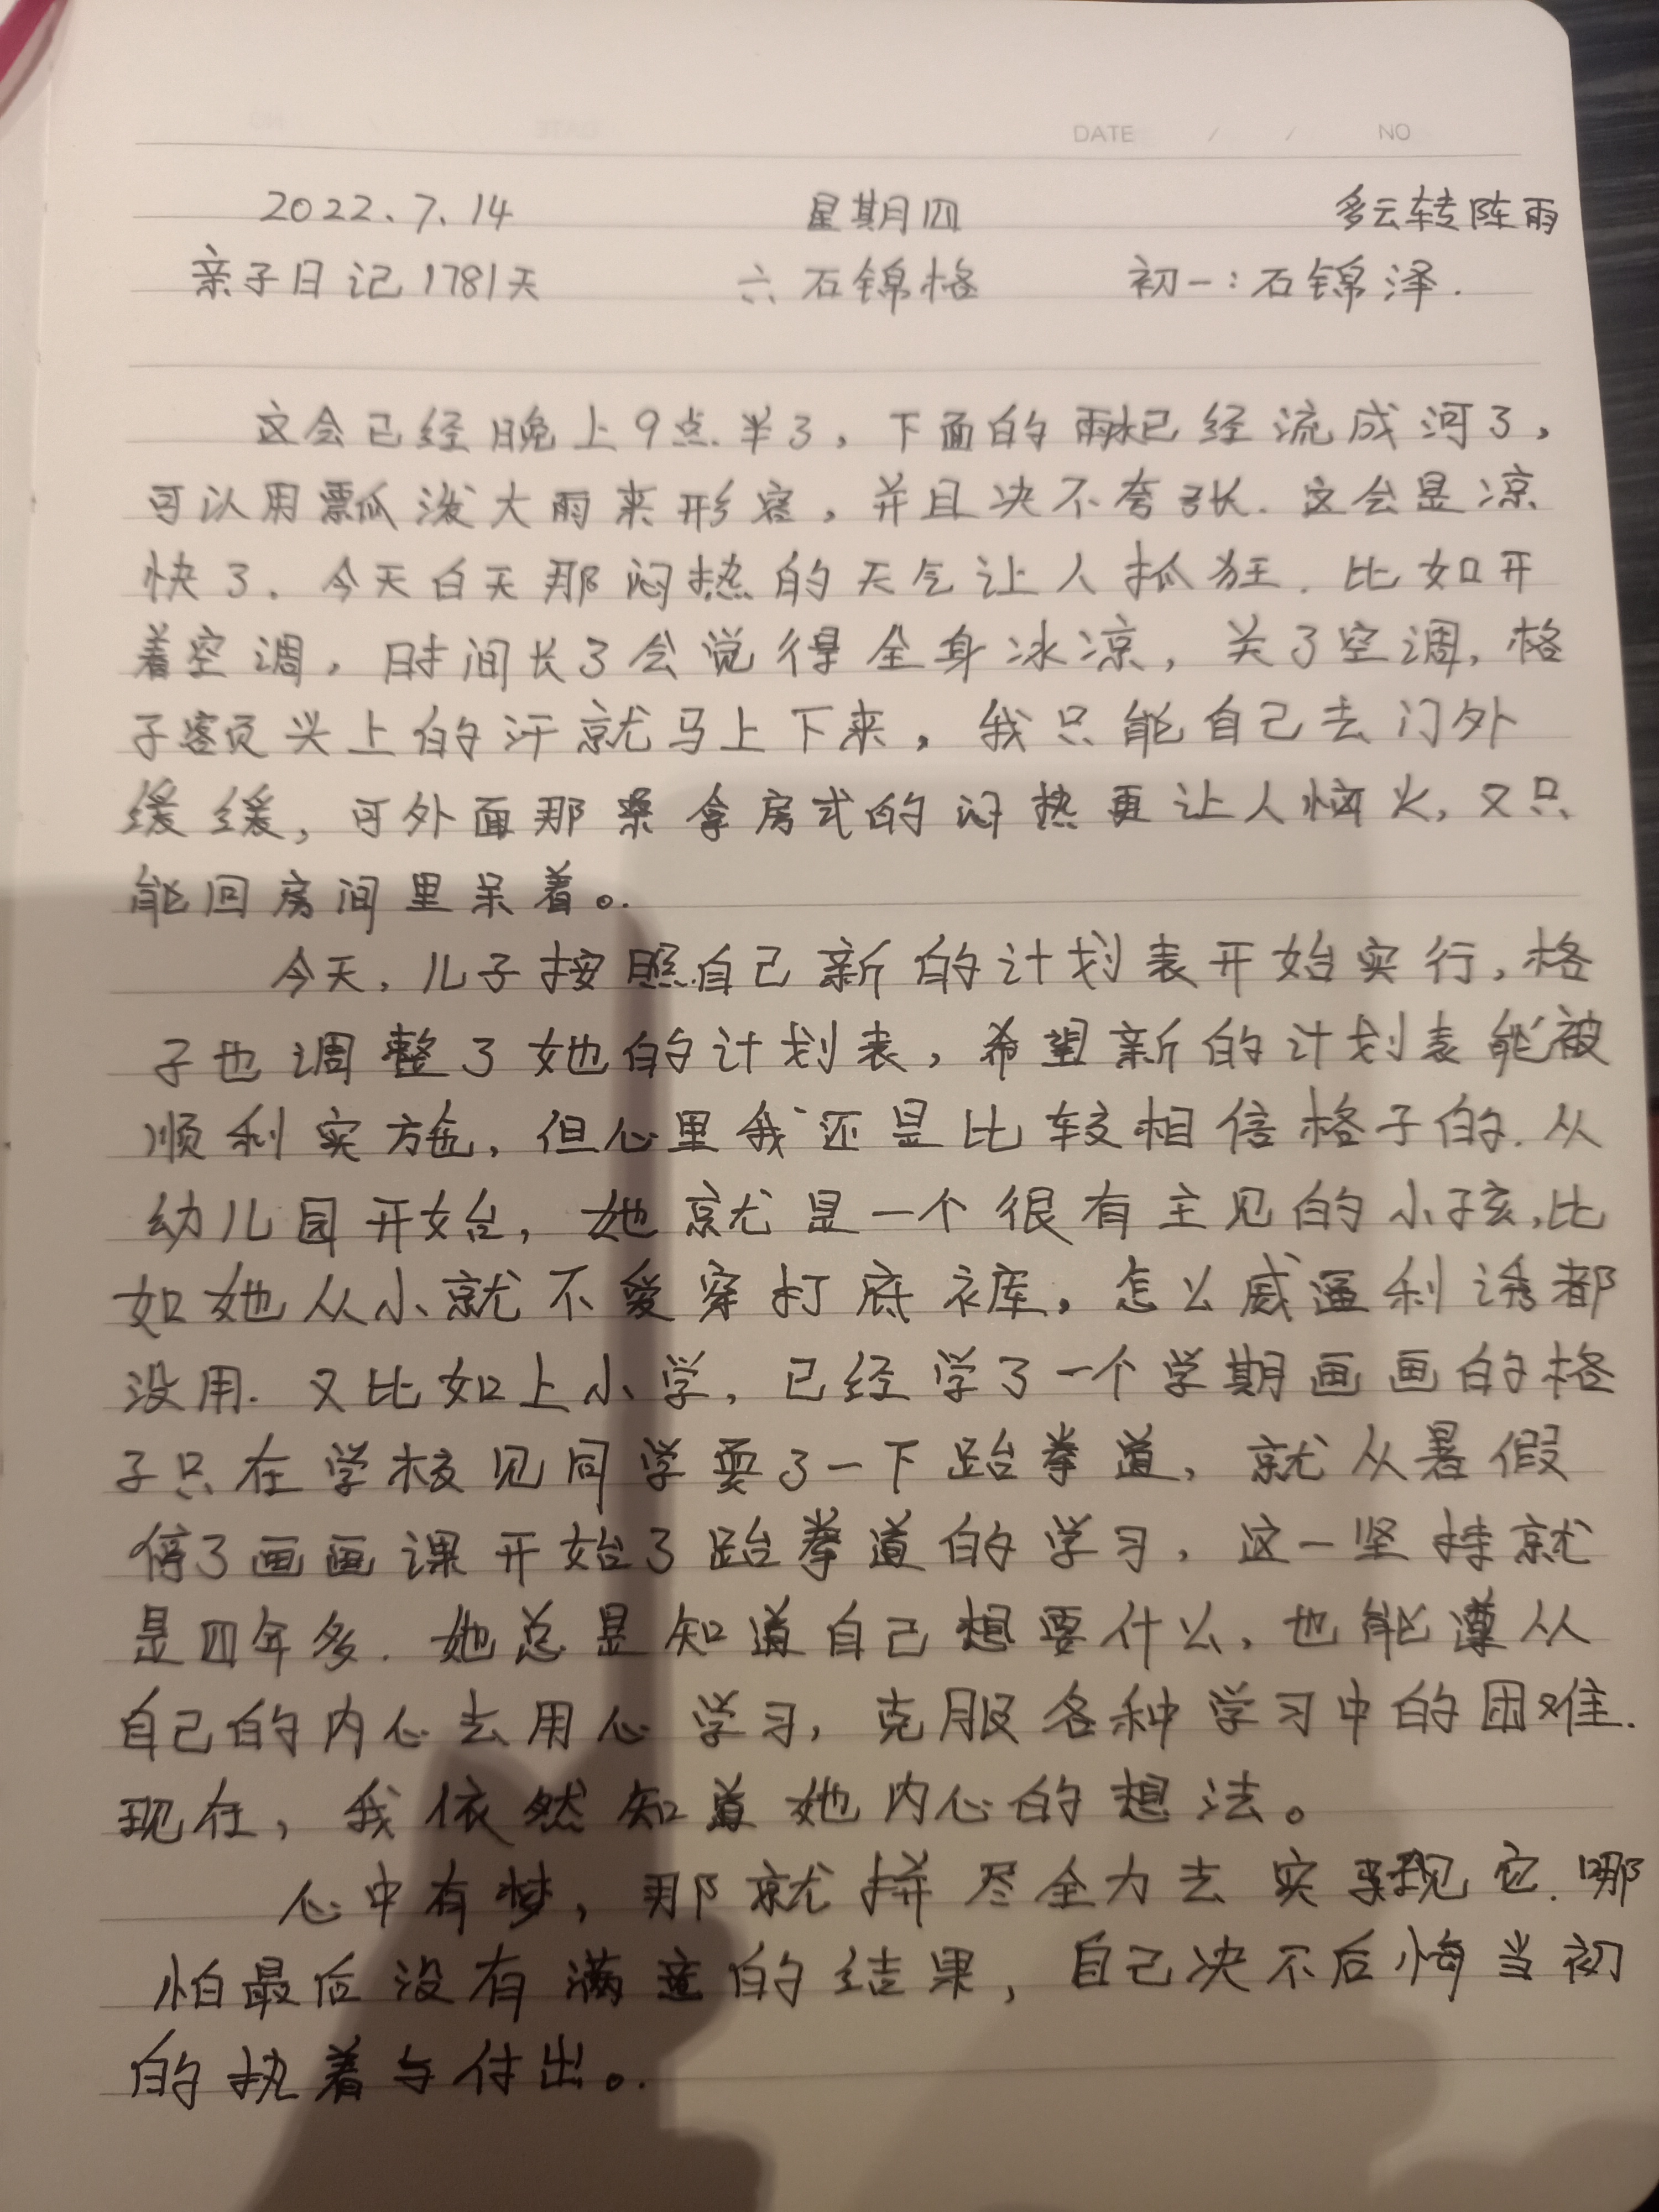 DATE / / NO
2022.7.14 星期四 多云转阵雨
亲子日记1781天 六 石锦格 初一:石锦泽.
这会已经晚上9点半了,下面的雨水已经流成河了,
可以用瓢泼大雨来形容,并且决不夸张.这会是凉
快了.今天白天那闷热的天气让人抓狂.比如开
着空调,时间长了会觉得全身冰凉,关了空调,格
子额头上的汗就马上下来,我只能自己去门外
缓缓,可外面那桑拿房式的闷热更让人恼火,又只
能回房间里呆着。
今天,儿子按照自己新的计划表开始实行,格
子也调整了她的计划表,希望新的计划表能被
顺利实施,但心里我还是比较相信格子的.从
幼儿园开始,她就是一个很有主见的小孩,比
如她从小就不爱穿打底裤,怎么威逼利诱都
没用.又比如上小学,已经学了一个学期画画的格
子只在学校见同学耍了一下跆拳道,就从暑假
停了画画课开始了跆拳道的学习,这一坚持就
是四年多.她总是知道自己想要什么,也能遵从
自己的内心去用心学习,克服各种学习中的困难.
现在,我依然知道她内心的想法。
心中有梦,那就拼尽全力去实现它.哪
怕最后没有满意的结果,自己决不后悔当初
的执着与付出。